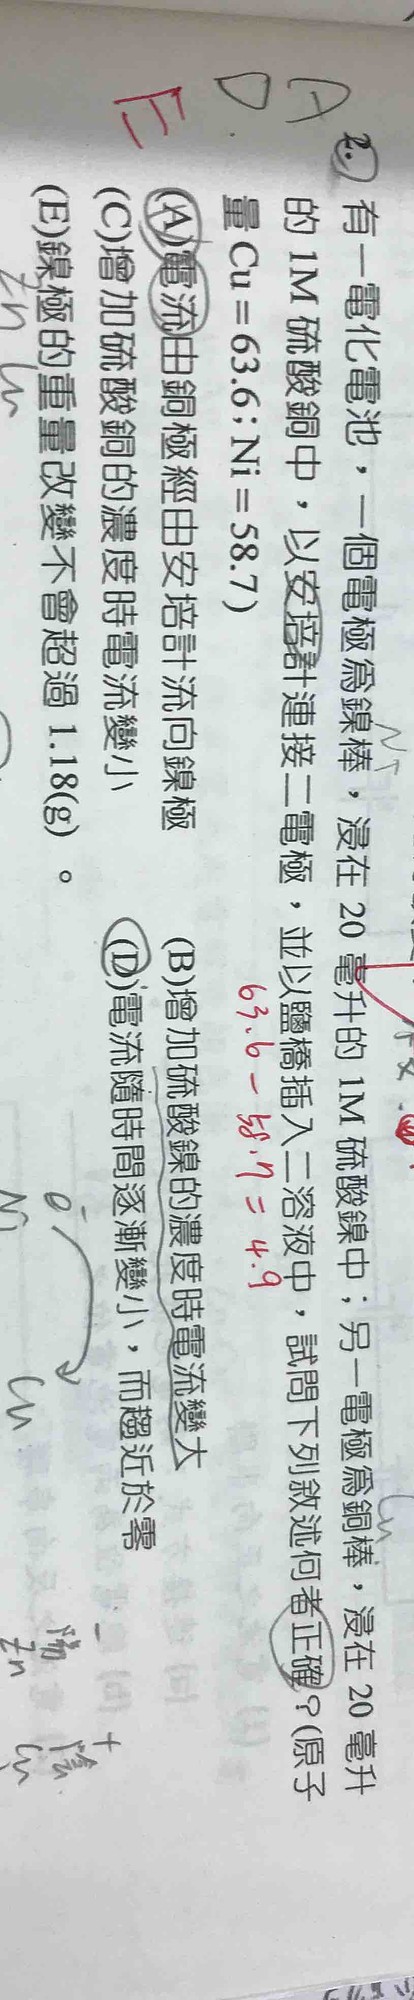 A
D
E
2. 有一電化電池，一個電極為鎳棒，浸在 20 毫升的 1M 硫酸鎳中；另一電極為銅棒，浸在 20 毫升
的 1M 硫酸銅中，以安培計連接二電極，並以鹽橋插入二溶液中，試問下列敘述何者正確？(原子
量 Cu＝63.6；Ni＝58.7)
63.6－58.7＝4.9
(A)電流由銅極經由安培計流向鎳極 (B)增加硫酸鎳的濃度時電流變大
(C)增加硫酸銅的濃度時電流變小 (D)電流隨時間逐漸變小，而趨近於零
(E)鎳極的重量改變不會超過 1.18(g)。
Ni
Cu
Zn Cu
e⁻
Ni Cu
－ ＋
陽 陰
Zn Cu